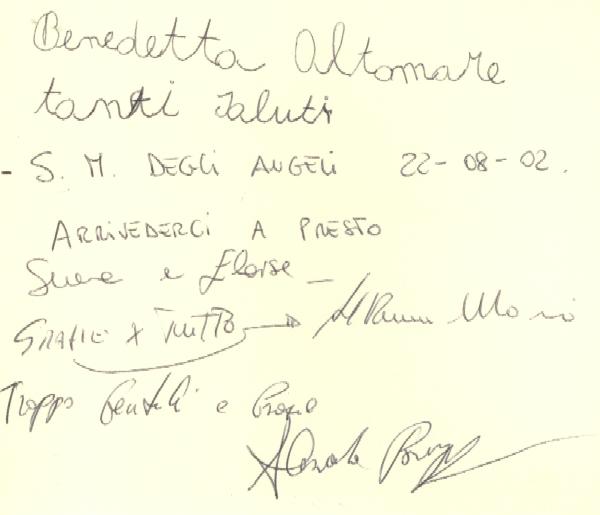 Benedetta Altomare
tanti saluti
- S. M. DEGLI ANGELI 22-08-02.
ARRIVEDERCI A PRESTO
e Eloise
GRAZIE X TUTTO
Troppo Gentili e